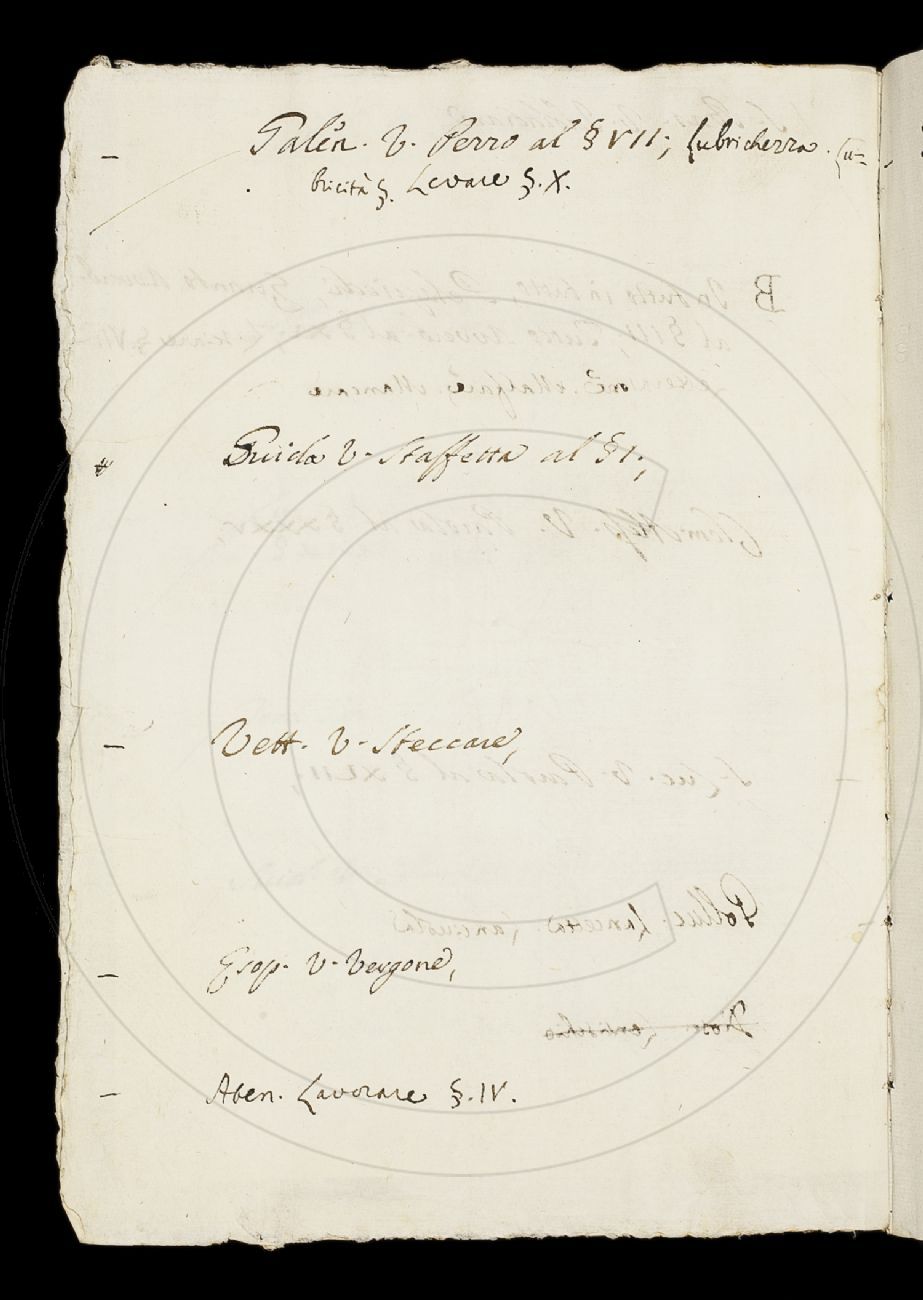 – Galen. V. Perro al § VII; Lubrichezza. Lu=
bricità §. Levare §. X.
Guida V. Staffetta al § I;
– Vett. V. Steccare,
– Esop. V. Vergone,
– Aten. Lavorare §. IV.